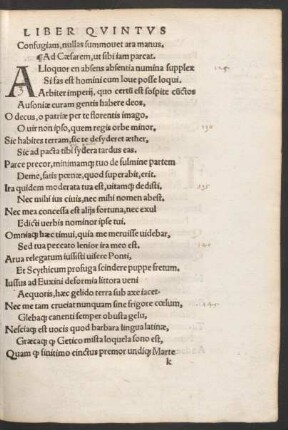 LIBER QVINTVS
Confugiam, nullas summouet ara manus,
¶Ad Cæsarem, ut sibi iam parcat.
ALloquor en absens absentia numina supplex
Si fas est homini cum Ioue posse loqui.
Arbiter imperij, quo certũ est sospite cũctos
Ausoniæ curam gentis habere deos,
O decus, o patriæ per te florentis imago,
O uir non ipso, quem regis orbe minor,
Sic habites terram, sic te desyderet æther,
Sic ad pacta tibi sydera tardus eas.
Parce precor, minimamq; tuo de fulmine partem
Deme, satis pœnæ, quod superabit, erit.
Ira quidem moderata tua est, uitamq; dedisti,
Nec mihi ius ciuis, nec mihi nomen abest,
Nec mea concessa est alijs fortuna, nec exul
Edicti uerbis nominor ipse tui.
Omniaq; hæc timui, quia me meruisse uidebar,
Sed tua peccato lenior ira meo est.
Arua relegatum iussisti uisere Ponti,
Et Scythicum profuga scindere puppe fretum,
Iussus ad Euxini deformia littora ueni
Aequoris, hæc gelido terra sub axe iacet.
Nec me tam cruciat nunquam sine frigore cœlum,
Glebaq; canenti semper obusta gelu,
Nesciaq; est uocis quod barbara lingua latinæ,
Græcaq; q̃ Getico mista loquela sono est,
Quam q̃ finitimo cinctus premor undiq; Marte
k